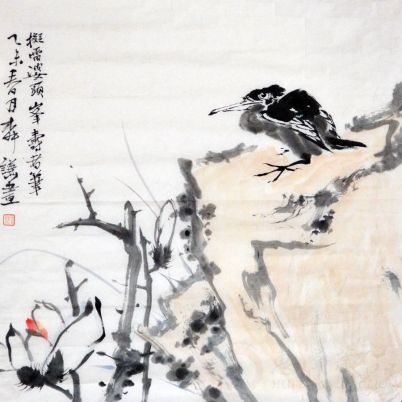 擬雷婆頭峯壽者筆
乙未春月畫